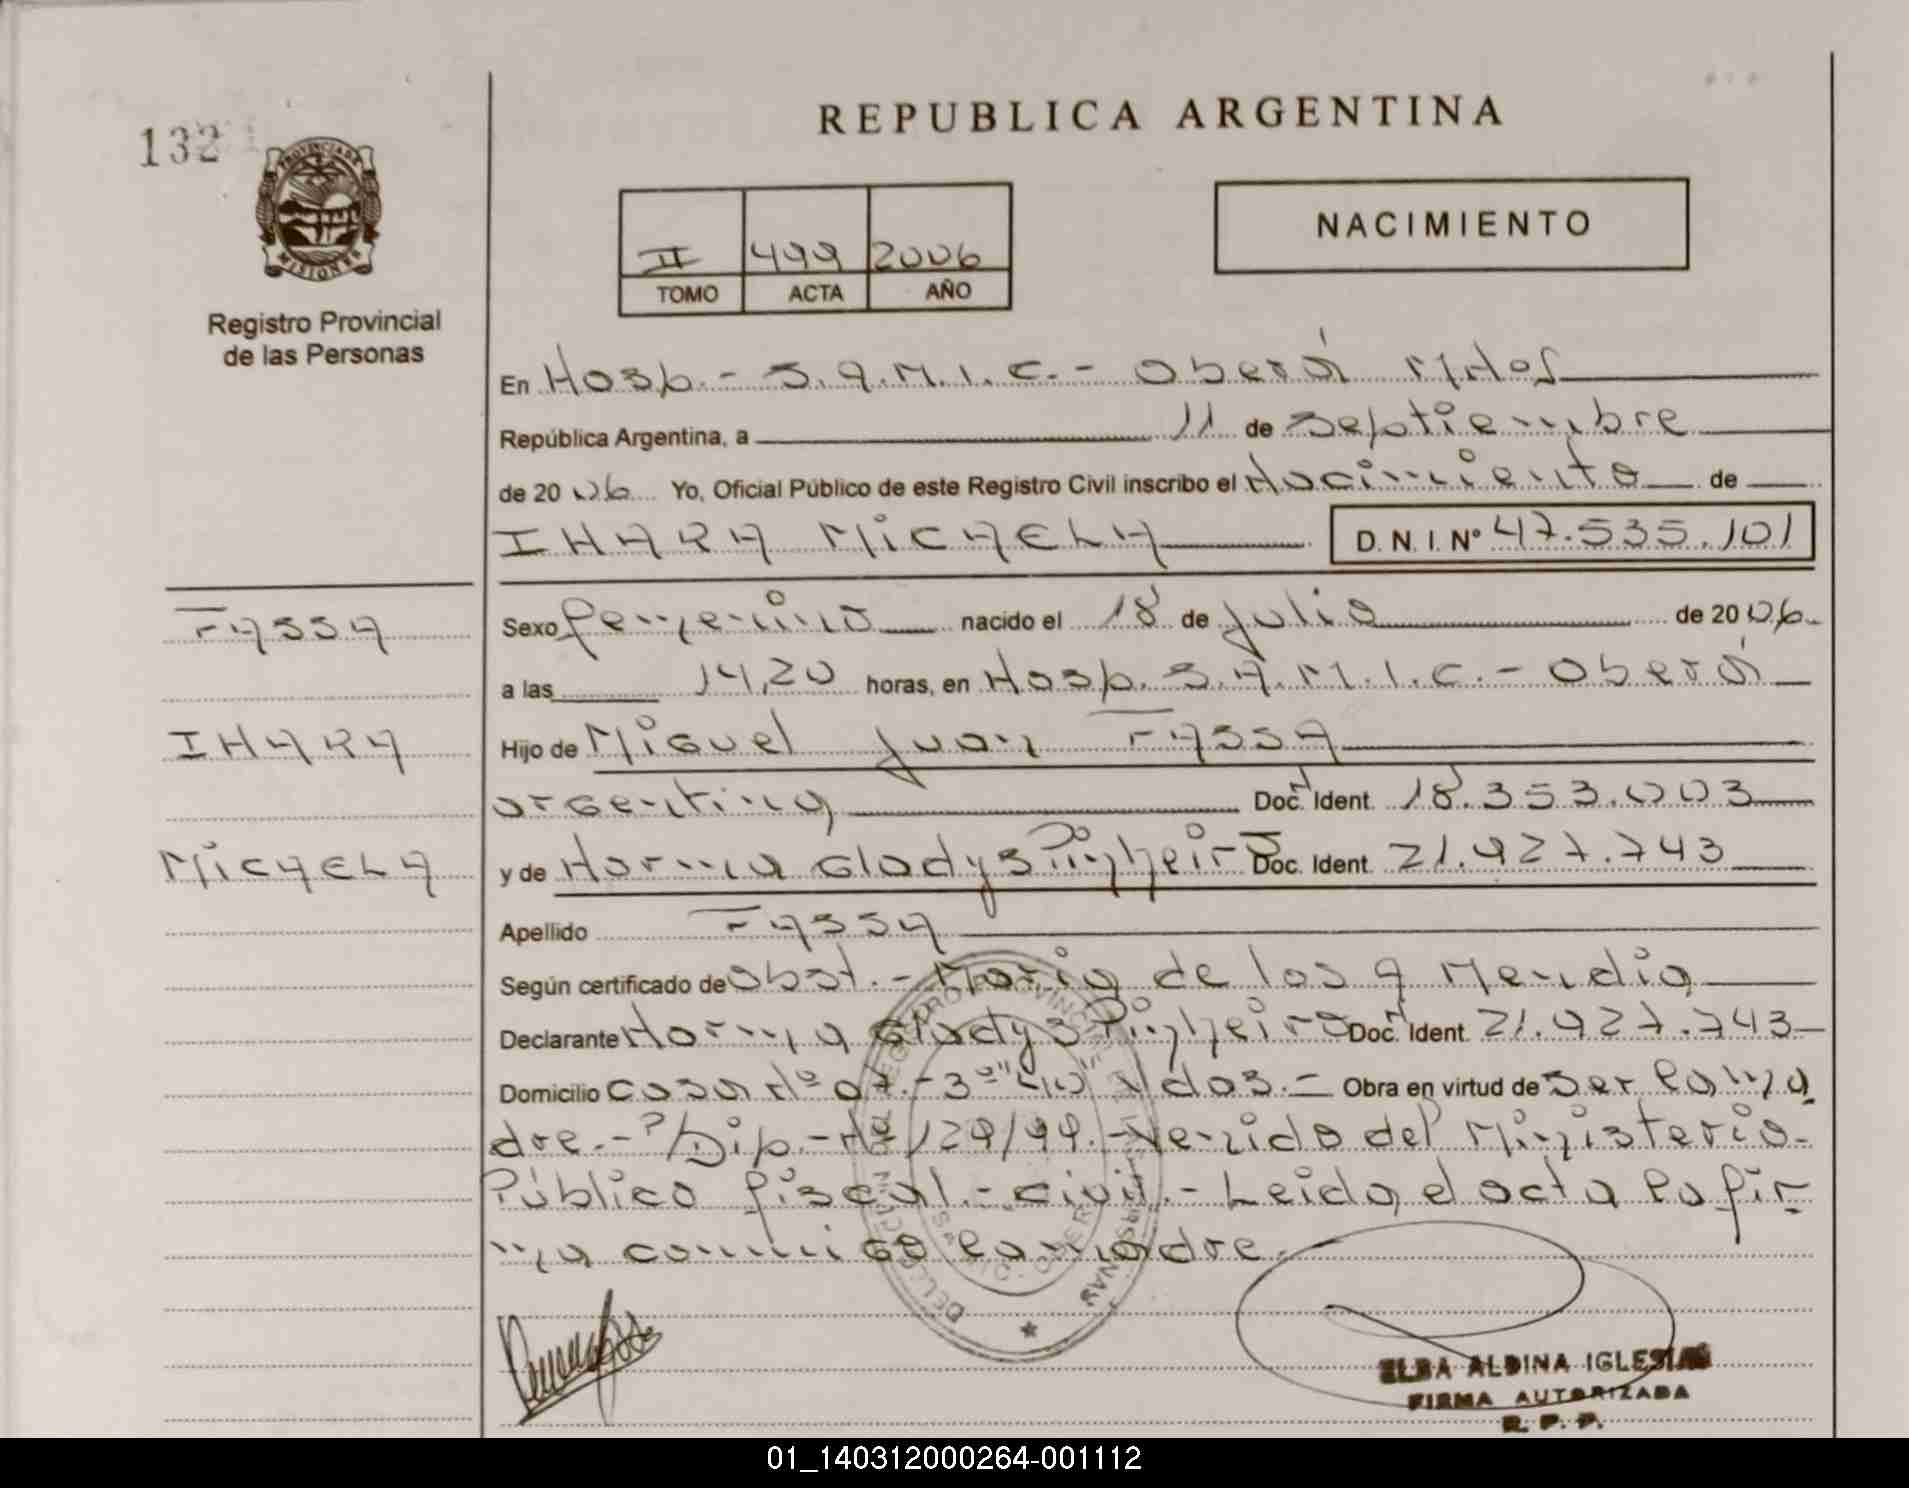 REPUBLICA ARGENTINA
132
PROVINCIA DE
MISIONES
Registro Provincial
de las Personas
II 499 2006
TOMO ACTA AÑO
NACIMIENTO
En Hosp.- S.A.M.I.C.- Oberá Mnes
República Argentina, a 11 de Septiembre
de 2006 Yo, Oficial Público de este Registro Civil inscribo el Nacimiento de
IHARA MICAELA D. N. I. Nº 47.535.101
FASSA
IHARA
MICAELA
Sexo femenino nacido el 18 de julio de 2006
a las 14,20 horas, en Hosp. S.A.M.I.C.- Oberá
Hijo de Miguel Juan FASSA
argentina Doc. Ident. 18.353.003
y de Norma Gladys Pinheiro Doc. Ident. 21.927.743
Apellido FASSA
Según certificado de Obst.- María de los A Mendia
Declarante Norma Gladys Pinheiro Doc. Ident. 21.927.743
Domicilio Casa Nº 07.- 3º Obra en virtud de Ser la ma
dre.- Dip.- Nº 129/99.- Venido del Ministerio
Público fiscal.- Civil.- Leida el acta la fir
ma conmigo la madre.-
ELBA ALDINA IGLESIAS
FIRMA AUTORIZADA
R. P. P.
01_140312000264-001112